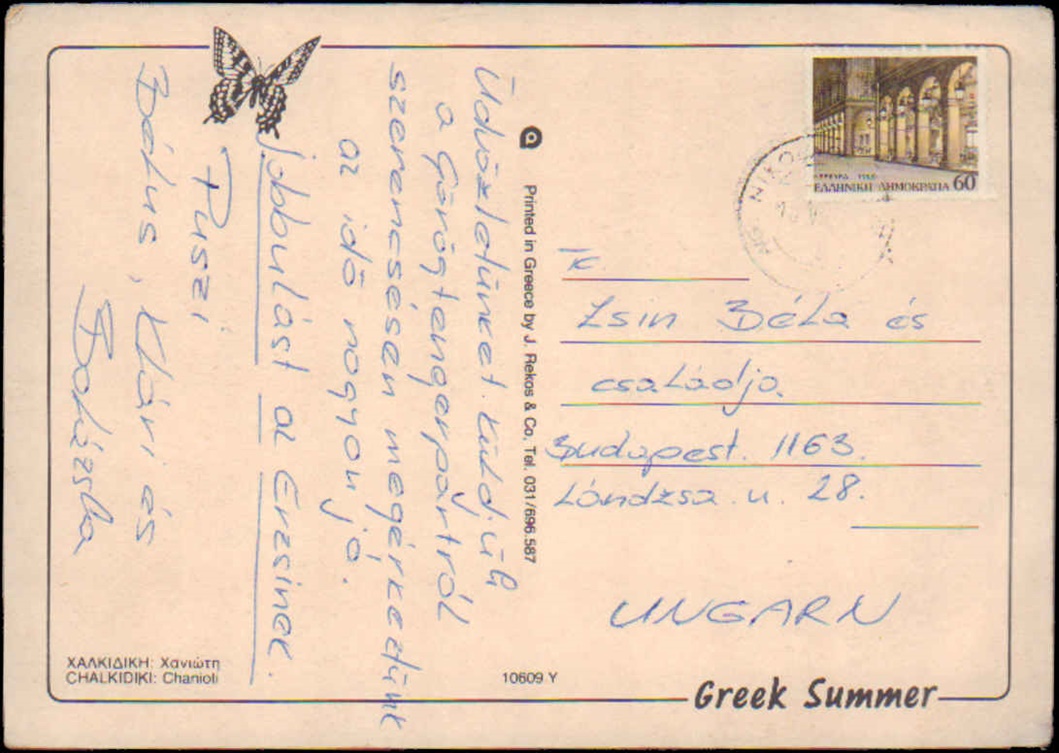 Üdvözletünket küldjük
a Görögtengerpartról
szerencsésen megérkeztünk
az idő nagyon jó.
Jobbulást az Erzsinek.
Puszi
Bélus, Klári és
Balázska
Printed in Greece by J. Rekos & Co. Tel. 031/696.587
ΕΛΛΗΝΙΚΗ ΔΗΜΟΚΡΑΤΙΑ 60
Zsin Béla és
családja
Budapest. 1163.
Lándzsa u. 28.
UNGARN
ΧΑΛΚΙΔΙΚΗ: Χανιώτη
CHALKIDIKI: Chanioti
10609 Y
Greek Summer